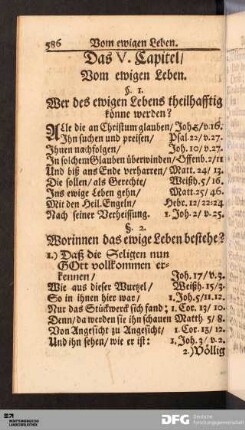 586 Vom ewigen Leben.
Das V. Capitel/
Vom ewigen Leben.
§. 1.
Wer des ewigen Lebens theilhafftig
könne werden?
Alle die an Christum glauben/ Joh. 3/ v. 16.
Ihn suchen und preisen/ Psal. 22/ v. 27.
Ihnen nachfolgen/ Joh. 10/ v. 27.
In solchem Glauben überwinden/ Offenb. 2/11
Und biß ans Ende verharren/ Matt. 24/ 13.
Die sollen/ als Gerechte/ Weißh. 5/ 16.
Ins ewige Leben gehn/ Matt. 25/ 46.
Mit den Heil. Engeln/ Hebr. 12/ 22. 24.
Nach seiner Verheissung. 1. Joh. 2/ v. 25.
§. 2.
Worinnen das ewige Leben bestehe?
1.) Daß die Seligen nun
GOtt vollkommen er-
kennen/ Joh. 17/ v. 3.
Wie aus dieser Wurtzel/ Weißh. 15/ 3.
So in ihnen hier war/ 1. Joh. 5/ 11. 12.
Nur das Stückwerck sich fand; 1. Cor. 13/ 10.
Denn/ da werden sie ihn schauen Matth. 5/ 8.
Von Angesicht zu Angesicht/ 1. Cor. 13/ 12.
Und ihn sehen/ wie er ist: 1. Joh. 3/ v. 2.
2.) Völlig
DFG Deutsche
Forschungsgemeinschaft